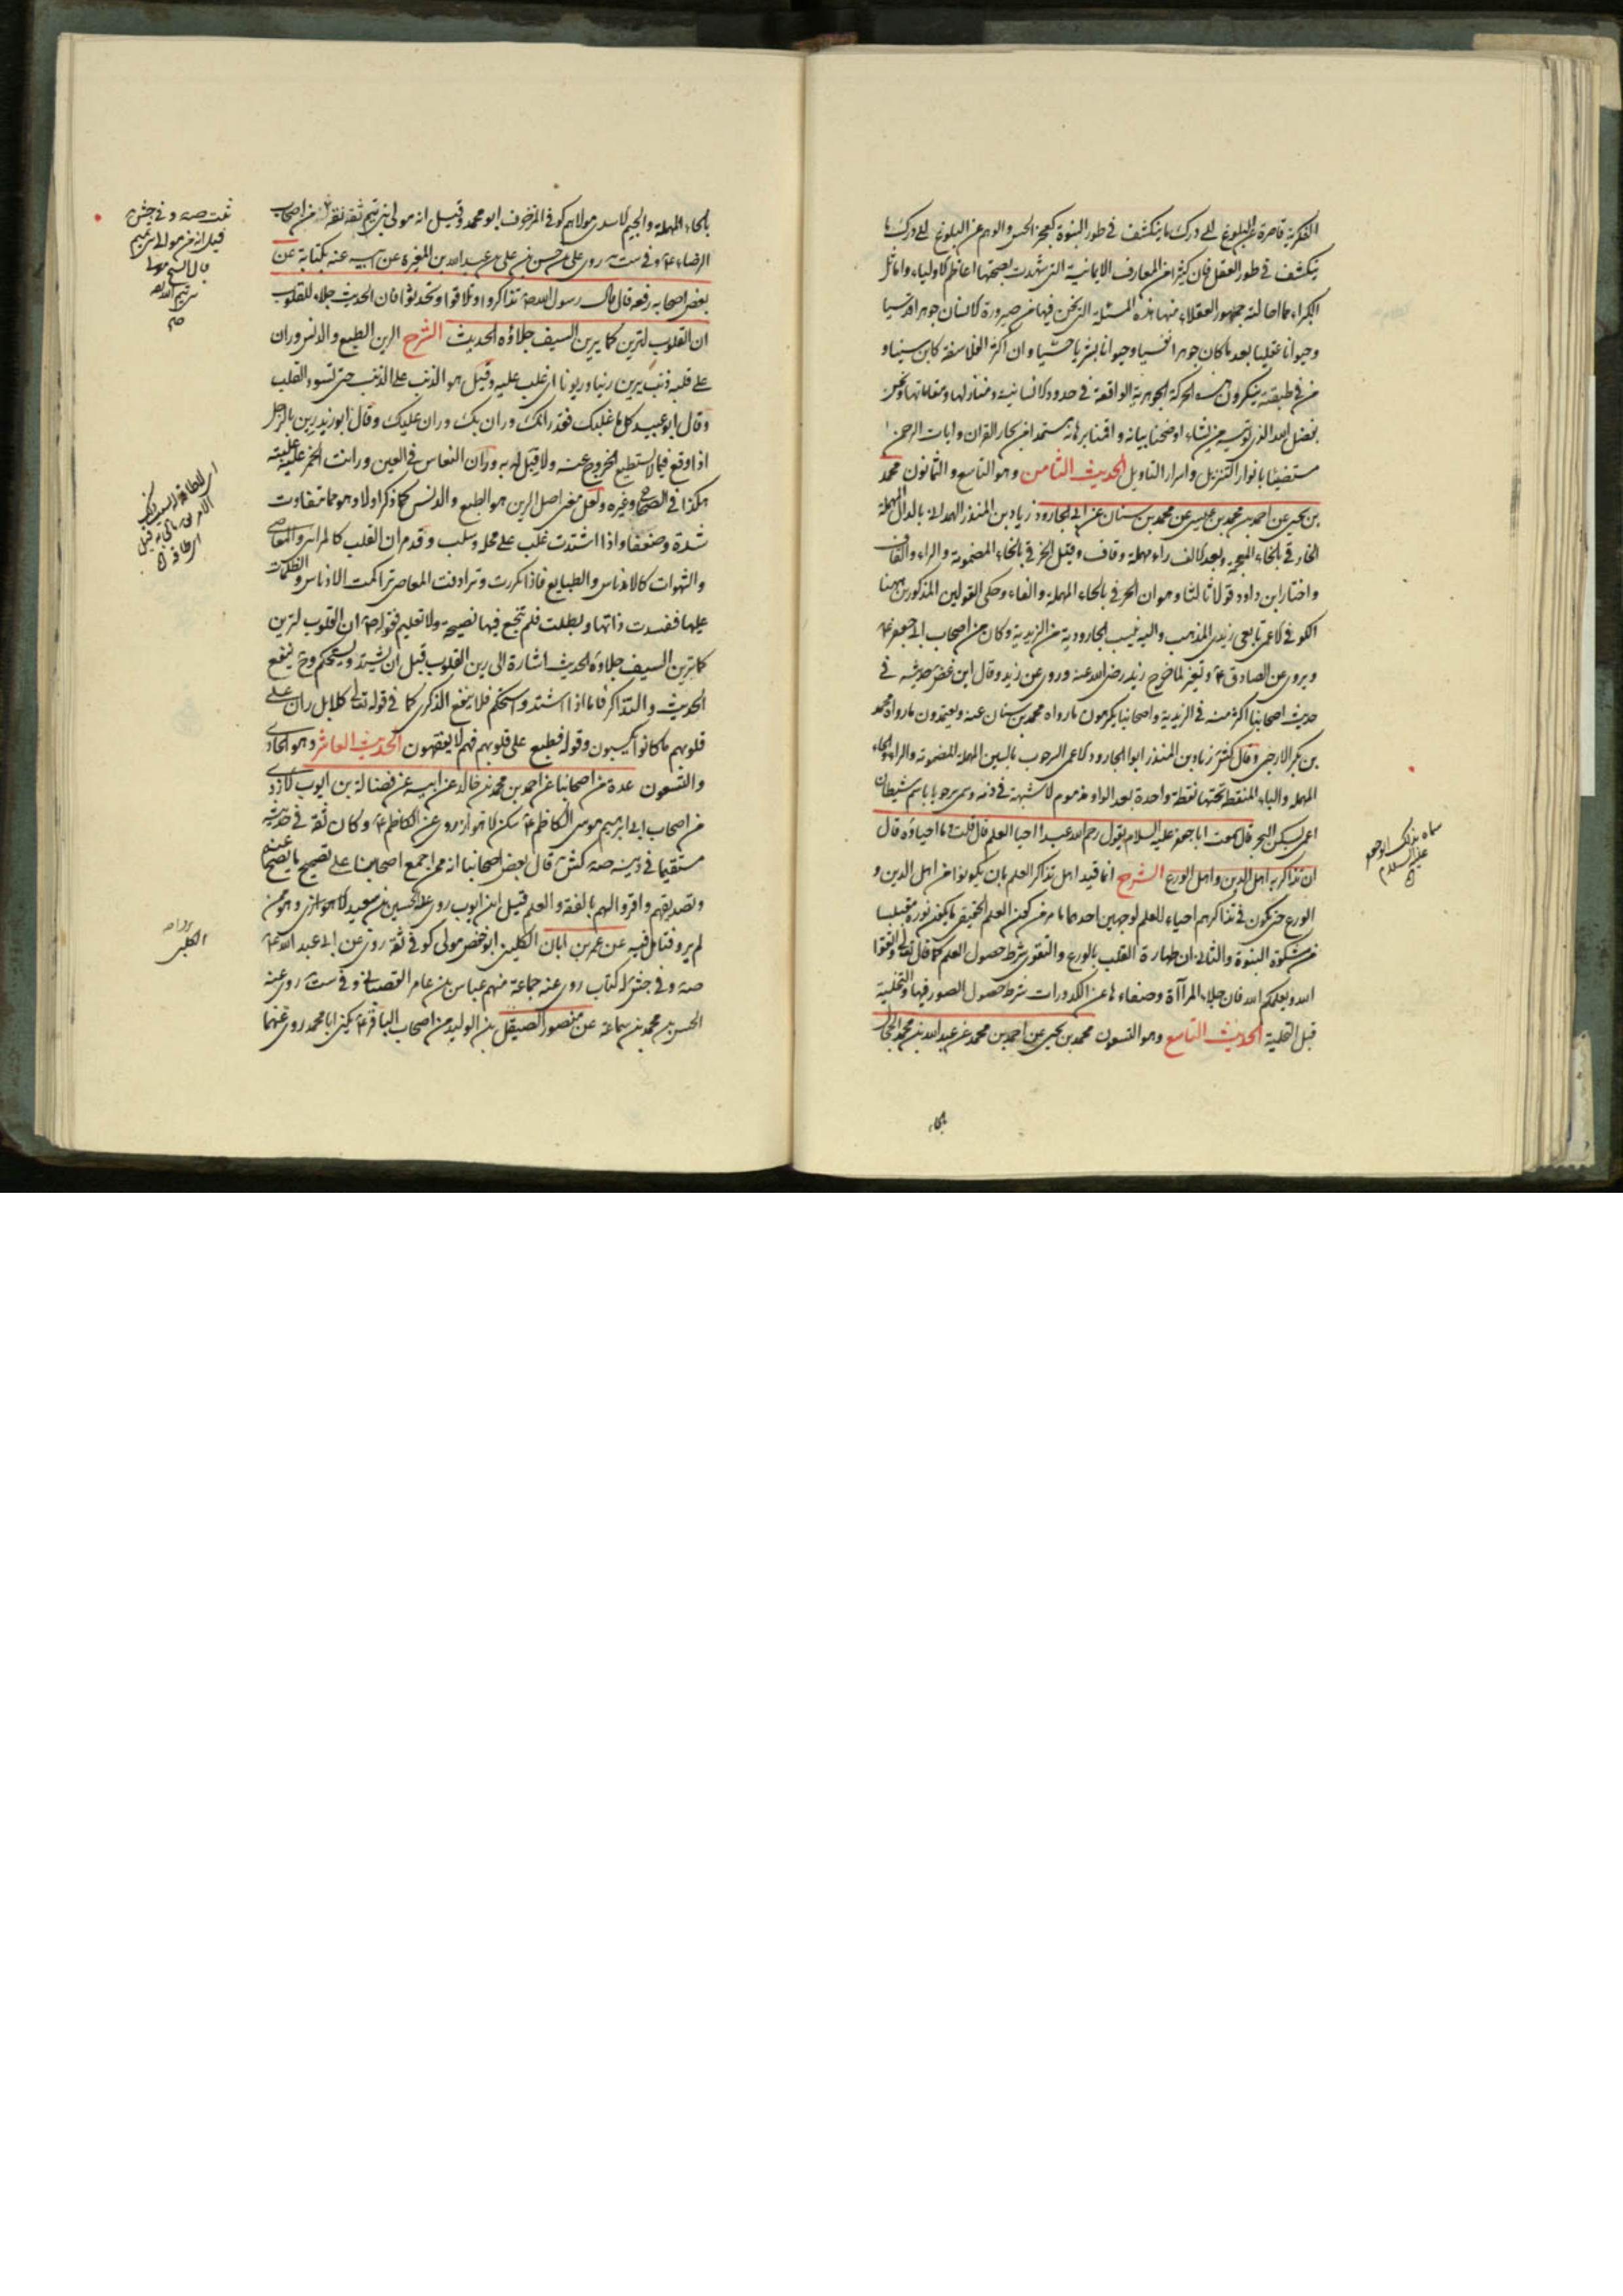 الفكرية قاصرة عن البلوغ الى درك ما ينكشف في طور النبوة كعجز الحس والوهم عن البلوغ الى درك ما
ينكشف في طور العقل فان كثيرا من المعارف الايمانية التي شهدت بصحتها اعاظم الاولياء واماثل
الكبراء مما احالته جمهور العقلاء منها هذه المسئلة التي نحن فيها من صيرورة الانسان جوهرا قدسيا
وحيوانا عقليا بعد ما كان جوهرا نفسيا وحيوانا بشريا حسيا وان اكثر الفلاسفة كابن سينا و
من في طبقته ينكرون هذه الحركة الجوهرية الواقعة في حدود الانسانية ومنازلها ومقاماتها ونحن
بفضل الله الذي يؤتيه من يشاء اوضحنا بيانه واقمنا برهانه مستمدا من بحار القران وايات الرحمن
مستضيئا بانوار التنزيل واسرار التاويل الحديث الثامن وهو التاسع والثمانون محمد
بن يحيى عن احمد بن محمد بن عيسى عن محمد بن سنان عن ابي الجارود زياد بن المنذر الهمداني بالدال المهملة
الخارقي بالخاء المعجمة وبعد الالف راء مهملة وقاف وقيل الخرقي بالخاء المضمومة والراء والقاف
واختار ابن داود قولا ثالثا وهو ان الحرفي بالحاء المهملة والفاء وحكى القولين المذكورين ههنا
الكوفي الاعمى تابعي زيدي المذهب واليه ينسب الجارودية من الزيدية وكان من اصحاب ابي جعفر ع
ويروي عن الصادق ع وتغير لما خرج زيد رضي الله عنه وروى عن زيد وقال ابن غض حديثه في
حديث اصحابنا اكثر منه في الزيدية واصحابنا يكرهون ما رواه محمد بن سنان عنه ويعتمدون ما رواه محمد
بن بكر الارجني وقال كش زياد بن المنذر ابو الجارود الاعمى السرحوب بالسين المهملة المضمومة والراء والحاء
المهملة والباء المنقطة تحتها نقطة واحدة بعد الواو مذموم لا شبهة في ذمه وسمى سرحوبا باسم شيطان
اعمى يسكن البحر قال سمعت ابا جعفر عليه السلام يقول رحم الله عبدا احيا العلم قال قلت وما احياؤه قال
ان تذاكر به اهل الدين واهل الورع الشرح انما قيد اهل تذاكر العلم بان يكونوا من اهل الدين و
الورع حتى يكون في تذاكرهم احياء للعلم لوجهين احدهما ما مر من كون العلم الحقيقي ما يكون نوره مقتبسا
من مشكوة النبوة والثاني ان طهارة القلب بالورع والتقوى شرط حصول العلم كما قال تعالى واتقوا
الله ويعلمكم الله فان جلاء المرآة وصفاءها عن الكدورات شرط حصول الصور فيها والتخلية
قبل التحلية الحديث التاسع وهو التسعون محمد بن يحيى عن احمد بن محمد عن عبد الله بن محمد الحجال
بالحاء
سماه بذلك ابو جعفر
عليه السلام
بالحاء المهملة والجيم الاسدي مولاهم كوفي المزخرف ابو محمد وقيل انه مولى بني تيم ثقة ثقة من اصحاب
الرضا ع وفي ست روى علي بن حسن بن علي بن عبد الله بن المغيرة عن ابيه عنه بكتابة عن
بعض اصحابه رفعه قال قال رسول الله ص تذاكروا وتلاقوا وتحدثوا فان الحديث جلاء للقلوب
ان القلوب لترين كما يرين السيف جلاؤه الحديث الشرح الرين الطبع والدنس وران
على قلبه ذنب يرين رينا وريونا اي غلب عليه وقيل هو الذنب على الذنب حتى تسود القلب
وقال ابو عبيد كل ما غلبك فقد رانك وران بك وران عليك وقال ابو زيد رين بالرجل
اذا وقع فيما لا يستطيع الخروج عنه ولا قبل له به وران النعاس في العين ورانت الخمر عليه غلبته
هكذا في الصحاح وغيره ولعل معنى اصل الرين هو الطبع والدنس كما ذكر اولا وهو مما تتفاوت
شدة وضعفا واذا اشتدت غلب على محله وسلب وقد مر ان القلب كالمراة والمعاصي
والشهوات كالادناس والطبايع فاذا تكررت وترادفت المعاصي تراكمت الادناس والظلمات
عليها ففسدت ذاتها وبطلت فلم تنجع فيها نصيحة ولا تعليم فقوله ص ان القلوب لترين
كما ترين السيف جلاؤه الحديث اشارة الى رين القلوب قبل ان يشتد ويستحكم وح ينفع
الحديث والتذاكر فاما اذا اشتد واستحكم فلا ينفع الذكرى كما في قوله تعالى كلا بل ران على
قلوبهم ما كانوا يكسبون وقوله فطبع على قلوبهم فهم لا يفقهون الحديث العاشر وهو الحادي
والتسعون عدة من اصحابنا عن احمد بن محمد بن خالد عن ابيه عن فضالة بن ايوب الازدي
من اصحاب ابي ابراهيم موسى الكاظم ع سكن الاهواز روى عن الكاظم ع وكان ثقة في حديثه
مستقيما في دينه صه كش قال بعض اصحابنا انه ممن اجمع اصحابنا على تصحيح ما يصح عنهم
وتصديقهم واقروا لهم بالفقه والعلم قيل ابن ايوب روى عنه الحسين بن سعيد الاهوازي وهو ممن
لم يرو فتامل فيه عن عمر بن ابان الكلبي ابو حفص مولى كوفي ثقة روى عن ابي عبد الله ع
صه وفي جش له كتاب روى عنه جماعة منهم عباس بن عامر القصباني وفي ست روى عنه
الحسن بن محمد بن سماعة عن منصور الصيقل بن الوليد من اصحاب الباقر ع يكنى ابا محمد روى عنهما
ثبت صه وفي جش
قيل انه من موالي بني تيم
الكلبي